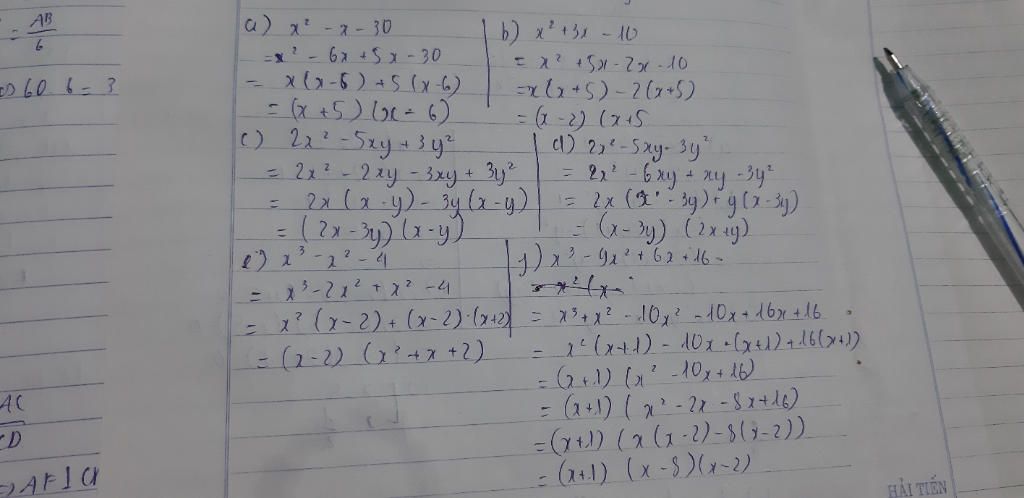 = AB/6
60 6 = 3
a) x² - x - 30
= x² - 6x + 5x - 30
= x(x-6) + 5(x-6)
= (x+5)(x-6)
b) x² + 3x - 10
= x² + 5x - 2x - 10
= x(x+5) - 2(x+5)
= (x-2)(x+5
c) 2x² - 5xy + 3y²
= 2x² - 2xy - 3xy + 3y²
= 2x(x-y) - 3y(x-y)
= (2x-3y)(x-y)
d) 2x² - 5xy - 3y²
= 2x² - 6xy + xy - 3y²
= 2x(x - 3y) + y(x-3y)
= (x-3y)(2x+y)
e) x³ - x² - 4
= x³ - 2x² + x² - 4
= x²(x-2) + (x-2)·(x+2)
= (x-2)(x² + x + 2)
g) x³ - 9x² + 6x + 16
= x²(x
= x³ + x² - 10x² - 10x + 16x + 16
= x²(x+1) - 10x·(x+1) + 16(x+1)
= (x+1)(x² - 10x + 16)
= (x+1)(x² - 2x - 8x + 16)
= (x+1)(x(x-2) - 8(x-2))
= (x+1)(x-8)(x-2)
AC
CD
HẢI TIẾN